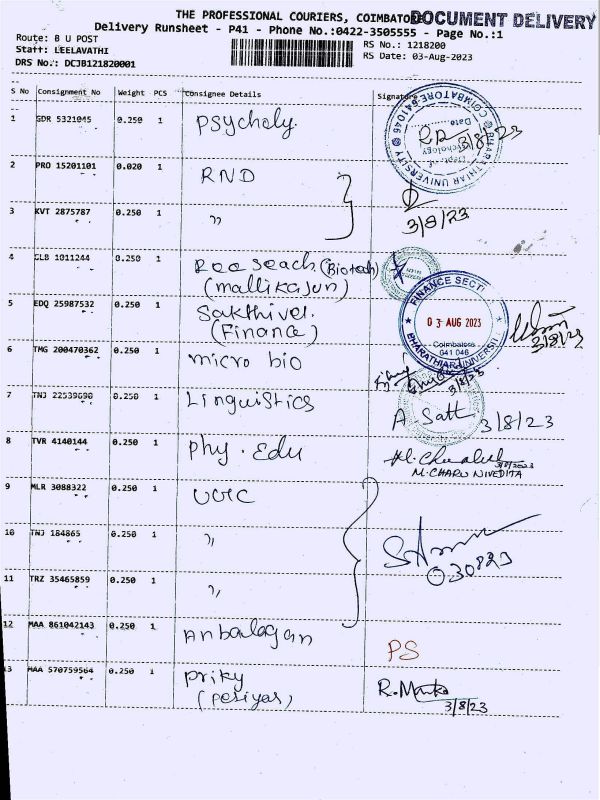 THE PROFESSIONAL COURIERS, COIMBATORE
DOCUMENT DELIVERY
Delivery Runsheet - P41 - Phone No.:0422-3505555 - Page No.:1
Route: B U POST
RS No.: 1218200
Staff: LEELAVATHI
RS Date: 03-Aug-2023
DRS No.: DCJB121820001
S No Consignment No Weight PCS Consignee Details Signature
1 GDR 5321045 0.250 1 Psycholy.
BHARATHIAR UNIVERSITY COIMBATORE-641046
Date
Dept. of Psychology
3/8/23
2 PRO 15201101 0.020 1 RND
3 KVT 2875787 0.250 1 ,,
3/8/23
4 GLB 1011244 0.250 1 Reeseach (Biotech)
(mallikajun)
5 EDQ 25987532 0.250 1 Sakthivel.
(Finance)
FINANCE SECTI
03 AUG 2023
Coimbatore
641 046
BHARATHIAR UNIVERSIT
3/8/23
6 TMG 200470362 0.250 1 micro bio
3/8/23
7 TNJ 22539690 0.250 1 Linguistics
A. Satt 3/8/23
8 TVR 4140144 0.250 1 phy. Edu
3/8/2023
M. CHARU NIVEDITA
9 MLR 3088322 0.250 1 UUIC
10 TNJ 184865 0.250 1 ,,
030823
11 TRZ 35465859 0.250 1 ,,
12 MAA 861042143 0.250 1 Anbalagan
PS
13 MAA 570759564 0.250 1 Priky
(periyar)
3/8/23